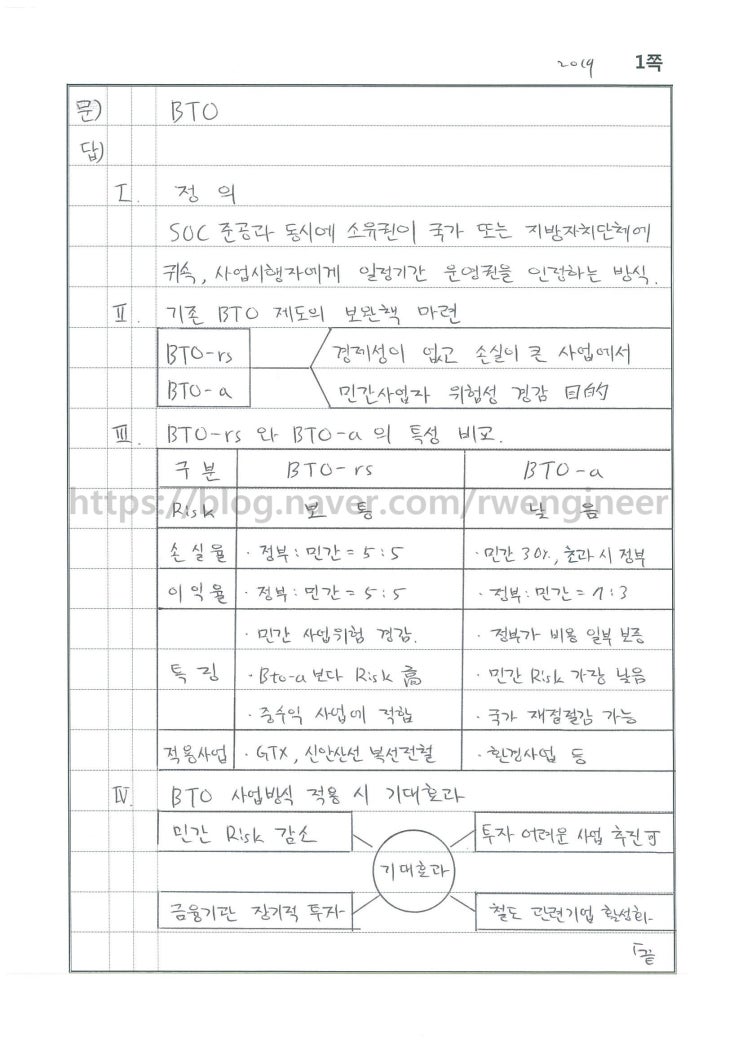 2019 1쪽
문) BTO
답)
Ⅰ. 정 의
SOC 준공과 동시에 소유권이 국가 또는 지방자치단체에
귀속, 사업시행자에게 일정기간 운영권을 인정하는 방식.
Ⅱ. 기존 BTO 제도의 보완책 마련
BTO-rs 경제성이 없고 손실이 큰 사업에서
BTO-a 민간사업자 위험성 경감 目的
Ⅲ. BTO-rs 와 BTO-a 의 특성 비교.
구분 BTO-rs BTO-a
https://blog.naver.com/rwengineer
Risk 보 통 낮 음
손실율 · 정부:민간 = 5:5 · 민간 30%, 초과시 정부
이익율 · 정부:민간 = 5:5 · 정부:민간 = 7:3
· 민간 사업위험 경감. · 정부가 비용 일부 보증
특 징 · Bto-a 보다 Risk 高 · 민간 Risk 가장 낮음
· 중수익 사업에 적합 · 국가 재정절감 가능
적용사업 · GTX, 신안산선 복선전철 · 환경사업 등
Ⅳ. BTO 사업방식 적용 시 기대효과
민간 Risk 감소 투자 어려운 사업 추진 可
기대효과
금융기관 장기적 투자 철도 관련기업 활성화
"끝